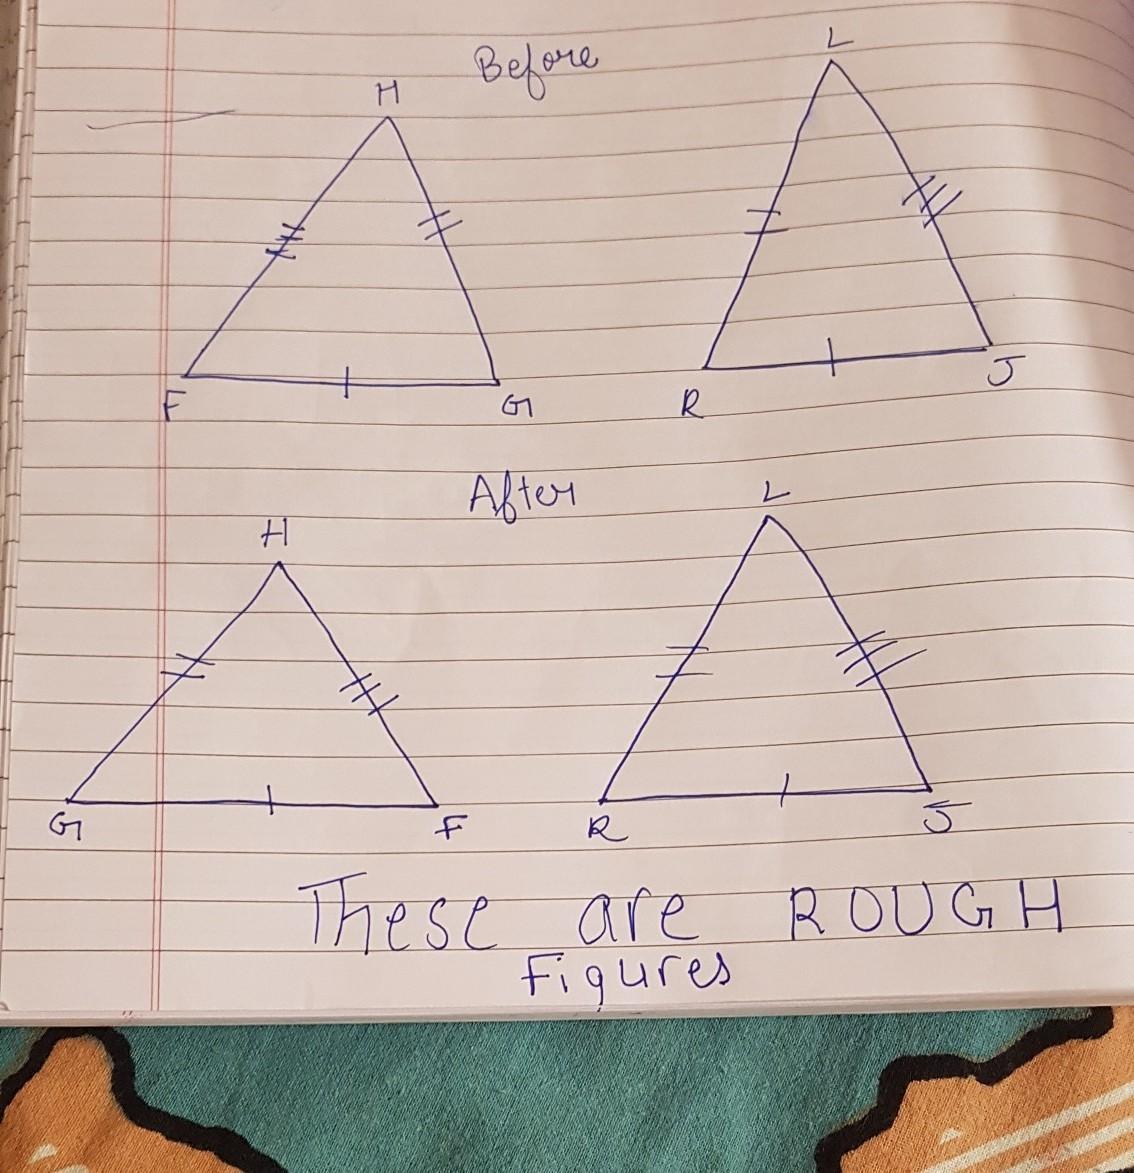 Before
H
L
F
G
R
J
After
H
L
G
F
R
J
These are ROUGH
Figures